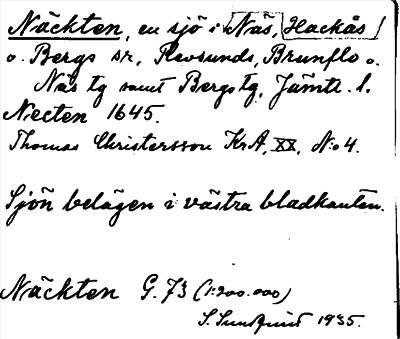 Näckten, en sjö i Näs, Hackås
o. Bergs sr, Revsunds, Brunflo o.
Näs tg samt Bergs tg, Jämtl. l.
Necten 1645.
Thomas Christersson KrA, XX, No 4.
Sjön belägen i västra bladkanten.
Näckten G. 73 (1:200.000)
S. Sundquist 1935.